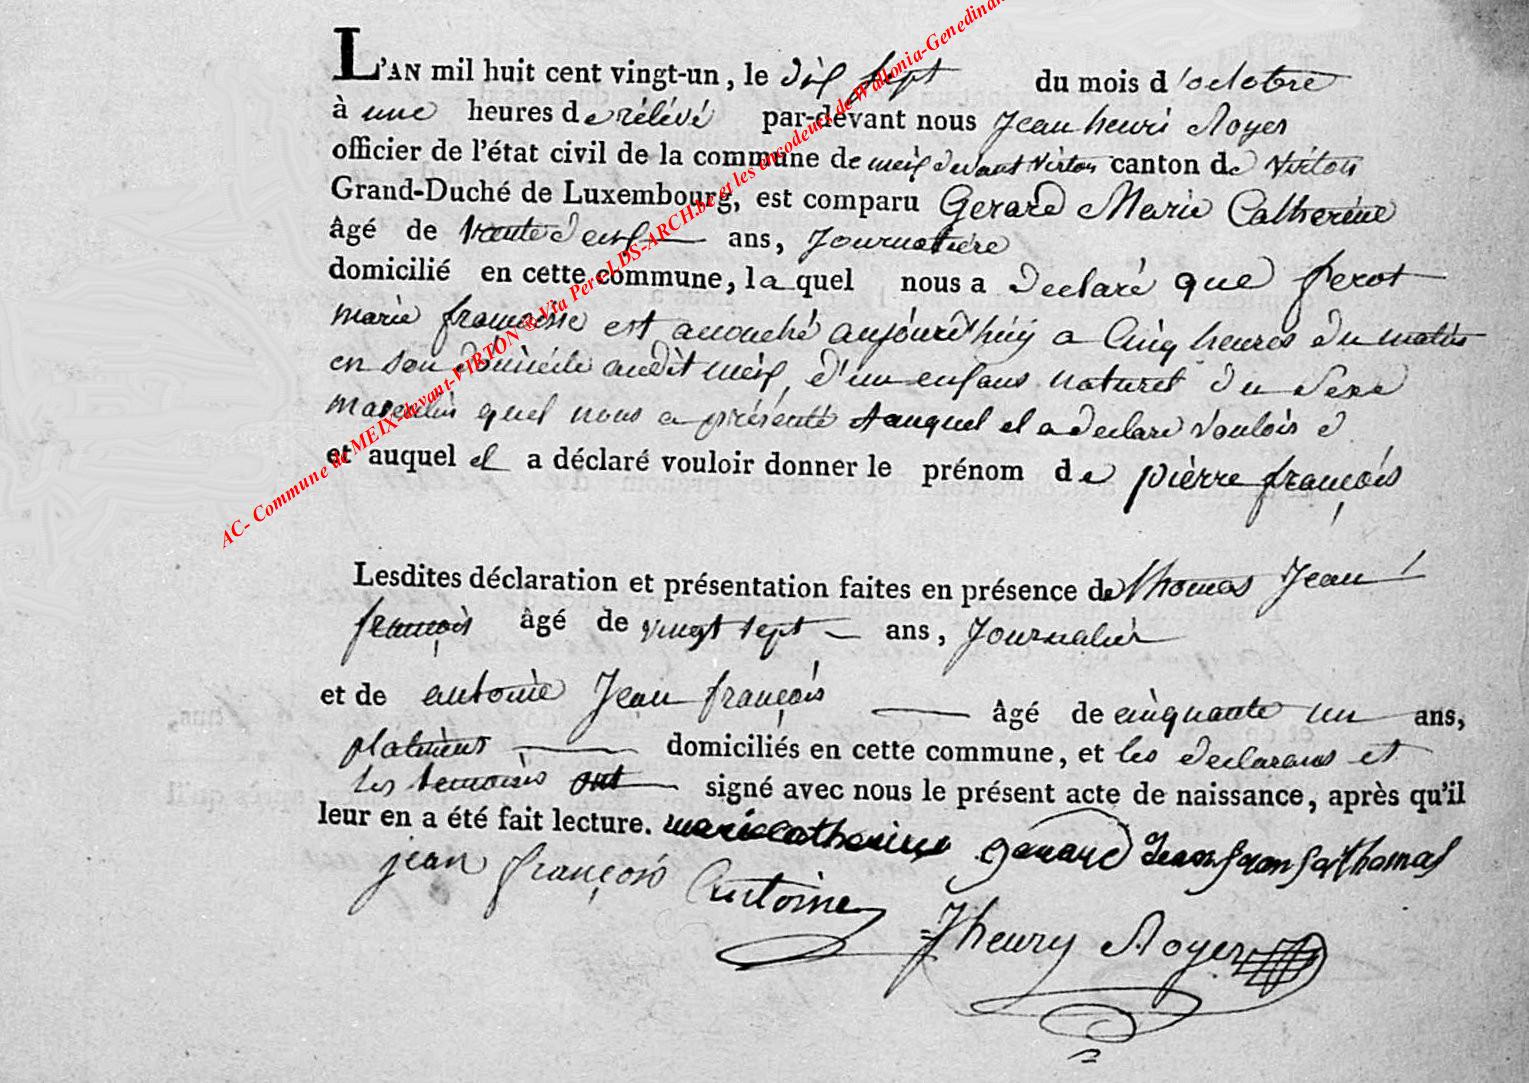 L'AN mil huit cent vingt-un, le dix sept du mois d'octobre
à une heures de rélévé par-devant nous Jean henri Royer
officier de l'état civil de la commune de meix devant virton canton de virton
Grand-Duché de Luxembourg, est comparu Gerard Marie Catherine
âgé de trente neuf ans, Journatiere
domicilié en cette commune, la quel nous a declaré que perot
marie françoise est acouché aujourd'huy a Cinq heures du matin
en son domicile audit meix, d'un enfans naturel du Sexe
masculin quel nous a présenté et auquel el a declaré vouloir d
et auquel el a déclaré vouloir donner le prénom de pièrre françois
Lesdites déclaration et présentation faites en présence de thomas Jean
françois âgé de vingt sept ans, Journalier
et de antoine Jean françois âgé de cinquante un ans,
platineur domiciliés en cette commune, et les declarans et
les temoins ont signé avec nous le présent acte de naissance, après qu'il
leur en a été fait lecture. marie catherine gerard Jean fran soi thomas
jean françois Antoine
Jhenry Royer
AC- Commune de MEIX-devant-VIRTON ® Via Pers LDS-ARCH.be et les encodeurs de Wallonia-Genedinan